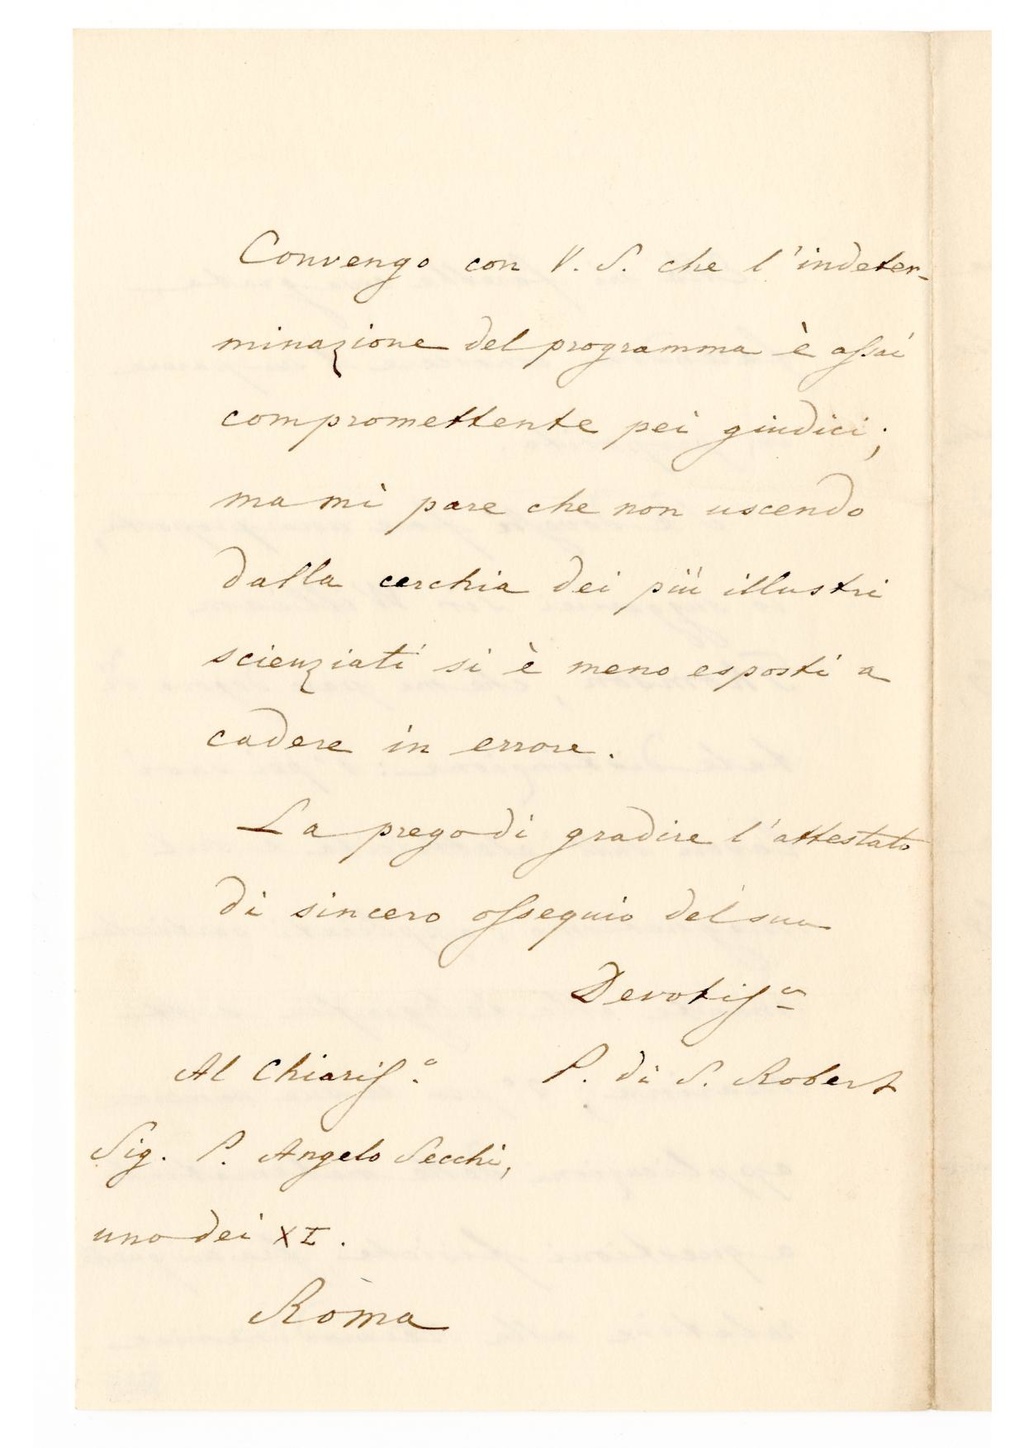 Convengo con V. S. che l'indeter-
minazione del programma è assai
compromettente pei giudici;
ma mi pare che non uscendo
dalla cerchia dei più illustri
scienziati si è meno esposti a
cadere in errore.
La prego di gradire l'attestato
di sincero ossequio del suo
Devotiss.o
P. di S. Robert
Al Chiariss.o
Sig. P. Angelo Secchi,
uno dei XL.
Roma